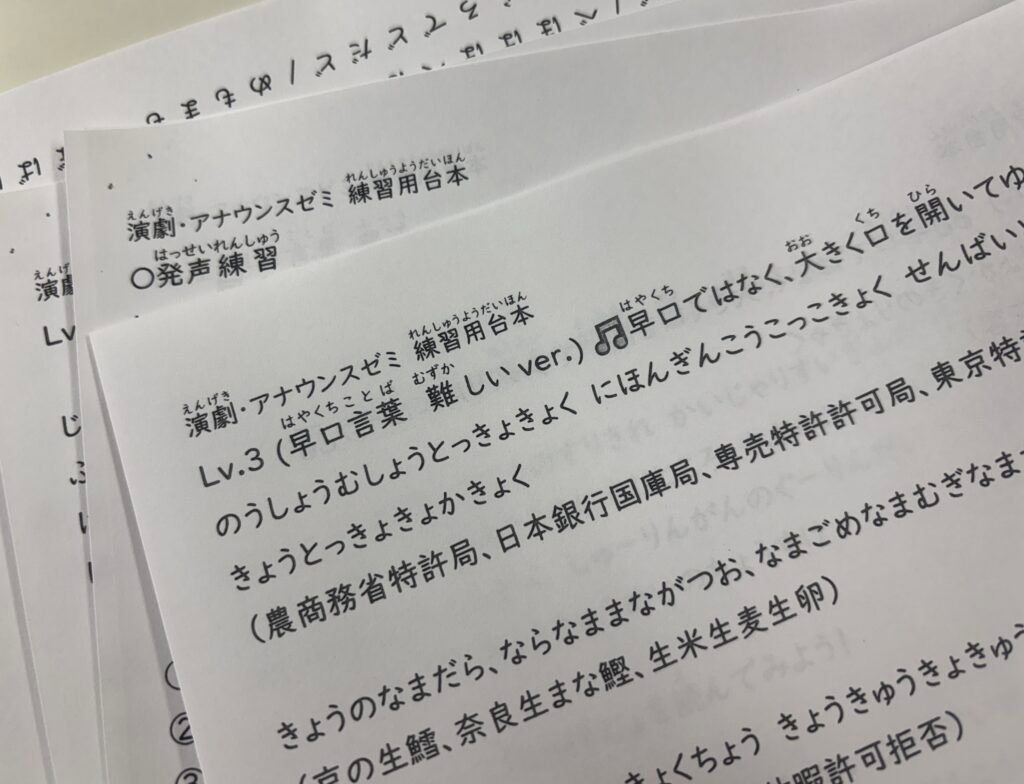 演劇・アナウンスゼミ 練習用台本
〇発声練習
Lv
演劇・アナウンスゼミ 練習用台本
Lv.3 (早口言葉 難しいver.) ♫早口ではなく、大きく口を開いてゆ
のうしょうむしょうとっきょきょく にほんぎんこうこっこきょく せんばい
きょうとっきょきょかきょく
(農商務省特許局、日本銀行国庫局、専売特許許可局、東京特
きょうのなまだら、ならなままながつお、なまごめなまむぎなま
(京の生鱈、奈良生まな鰹、生米生麦生卵)
くちょう きょうきゅうきょきゅう
暇許可拒否)
②